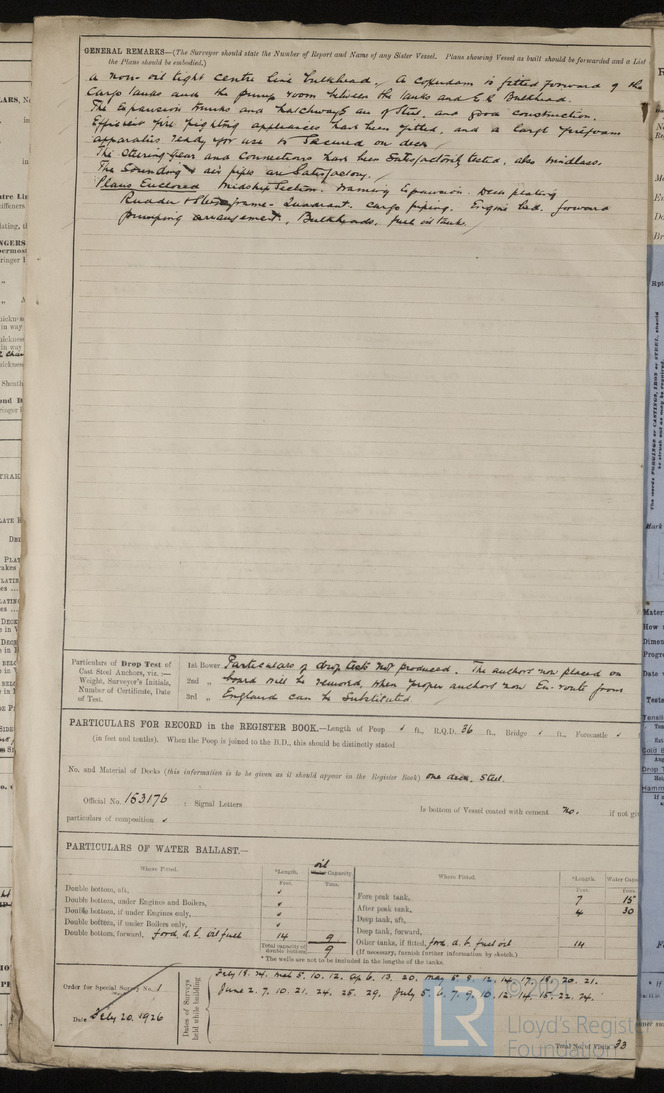 GENERAL REMARKS—(The Surveyor should state the Number of Report and Name of any Sister Vessel. Plans showing Vessel as built should be forwarded and a List
the Plans should be embodied.)
a non-oil tight centre line bulkhead. A cofferdam is fitted forward of the
Cargo tanks and the pump room between the tanks and E.R. Bulkhead.
The Expansion trunks and hatchways are of Steel, and good construction.
Efficient fire fighting appliances have been fitted, and a large firefoam
apparatus ready for use is Secured on deck.
The Steering Gear and connections have been Satisfactorily tested, also windlass.
The Sounding & air pipes are Satisfactory.
Plans Enclosed Midship Section. Expansion. Deck plating
Rudder & Stern frame - Quadrant. Cargo piping. Engine bed. forward
pumping arrangement, Bulkheads. fuel oil tanks.
Particulars of Drop Test of
Cast Steel Anchors, viz.:—
Weight, Surveyor's Initials,
Number of Certificate, Date
of Test.
1st Bower Particulars of drop tests not produced. The anchors now placed on
2nd „ board will be removed, when proper anchors now En-route from
3rd „ England can be Substituted
PARTICULARS FOR RECORD in the REGISTER BOOK.—Length of Poop ft., R.Q.D. 36 ft., Bridge ft., Forecastle
(in feet and tenths). When the Poop is joined to the B.D., this should be distinctly stated
No. and Material of Decks (this information is to be given as it should appear in the Register Book) one deck. Steel.
Official No. 153176 ; Signal Letters Is bottom of Vessel coated with cement no. if not
particulars of composition
PARTICULARS OF WATER BALLAST.—
Where Fitted. *Length. oil Water Capacity. Where Fitted. *Length. Water
Feet. Tons. Feet. Tons.
Double bottom, aft, Fore peak tank, 7 15
Double bottom, under Engines and Boilers, After peak tank, 4 30
Double bottom, if under Engines only, Deep tank, aft,
Double bottom, if under Boilers only, Deep tank, forward,
Double bottom, forward, ford. a.b. oil fuel 14 9 Other tanks, if fitted, ford. a.b. fuel oil 14
Total capacity of double bottom 9 (If necessary, furnish further information by sketch.)
* The wells are not to be included in the lengths of the tanks.
Order for Special Survey No. 1
Date July 20. 1926
Dates of Surveys held while building
May 5. 8. 12. 14. 17. 18. 20. 21.
June 2. 7. 10. 21. 24. 25. 29. July 5. 6. 7. 9. 10. 12. 14. 15. 22. 24.
Total No. of Visits 33
© 2021
LR
Lloyd's Register
Foundation